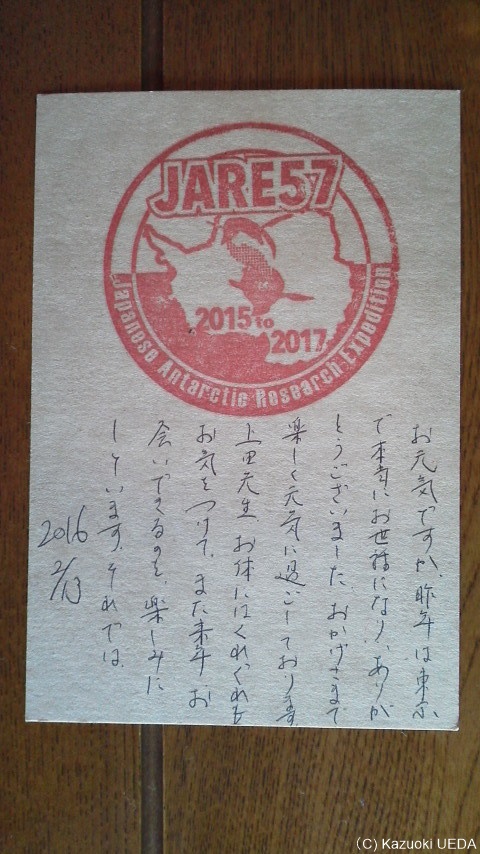 JARE57
2015 to
2017
Japanese Antarctic Research Expedition
お元気ですか。昨年は東京
で本当にお世話になり、ありが
とうございました。おかげさまで
楽しく元気に過ごしております。
上田先生、お体にはくれぐれも
お気をつけて。また来年お
会いできるのを楽しみに
しています。それでは。
2016
2/13
(C) Kazuoki UEDA